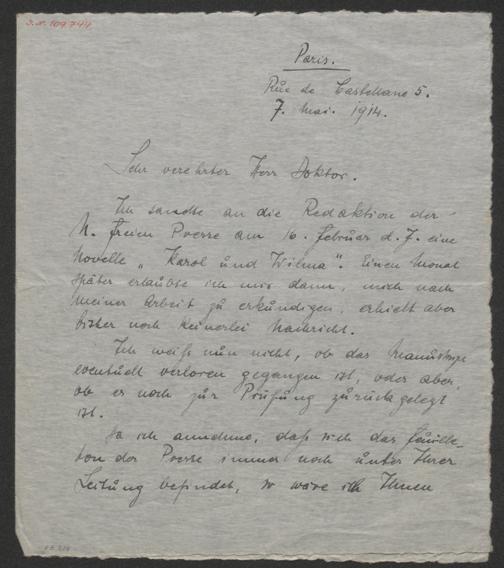 J.N. 109.744
Paris.
Rue de Castellane 5.
7. Mai. 1914.
Sehr verehrter Herr Doktor.
Ich sandte an die Redaktion der
N. freien Presse am 16. Februar d. J. eine
Novelle „Karol und Wilma". Einen Monat
später erlaubte ich mir dann, mich nach
meiner Arbeit zu erkundigen, erhielt aber
bisher noch keinerlei Nachricht.
Ich weiß nun nicht, ob das Manuskript
eventuell verloren gegangen ist, oder aber,
ob es noch zur Prüfung zurückgelegt
ist.
Da ich annehme, daß sich das Feuille-
ton der Presse immer noch unter Ihrer
Leitung befindet, so wäre ich Ihnen